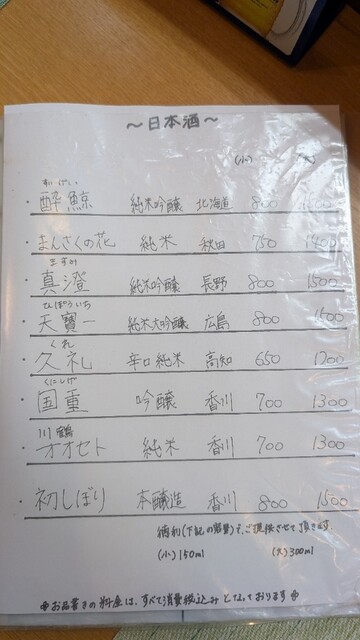 ～日本酒～
(小) (大)
すいげい
・酔鯨 純米吟醸 北海道 800
・まんさくの花 純米 秋田 750 1400
ますみ
・真澄 純米吟醸 長野 800 1500
てんぽういち
・天寶一 純米大吟醸 広島 800
くれ
・久礼 辛口純米 高知 650 1200
くにしげ
・国重 吟醸 香川 700 1300
川鶴
・オオセト 純米 香川 700 1300
・初しぼり 本醸造 香川 800 1500
徳利(下記の容量)で、ご提供させて頂きます。
(小)150ml (大)300ml
お品書きの料金は、すべて消費税込みとなっております